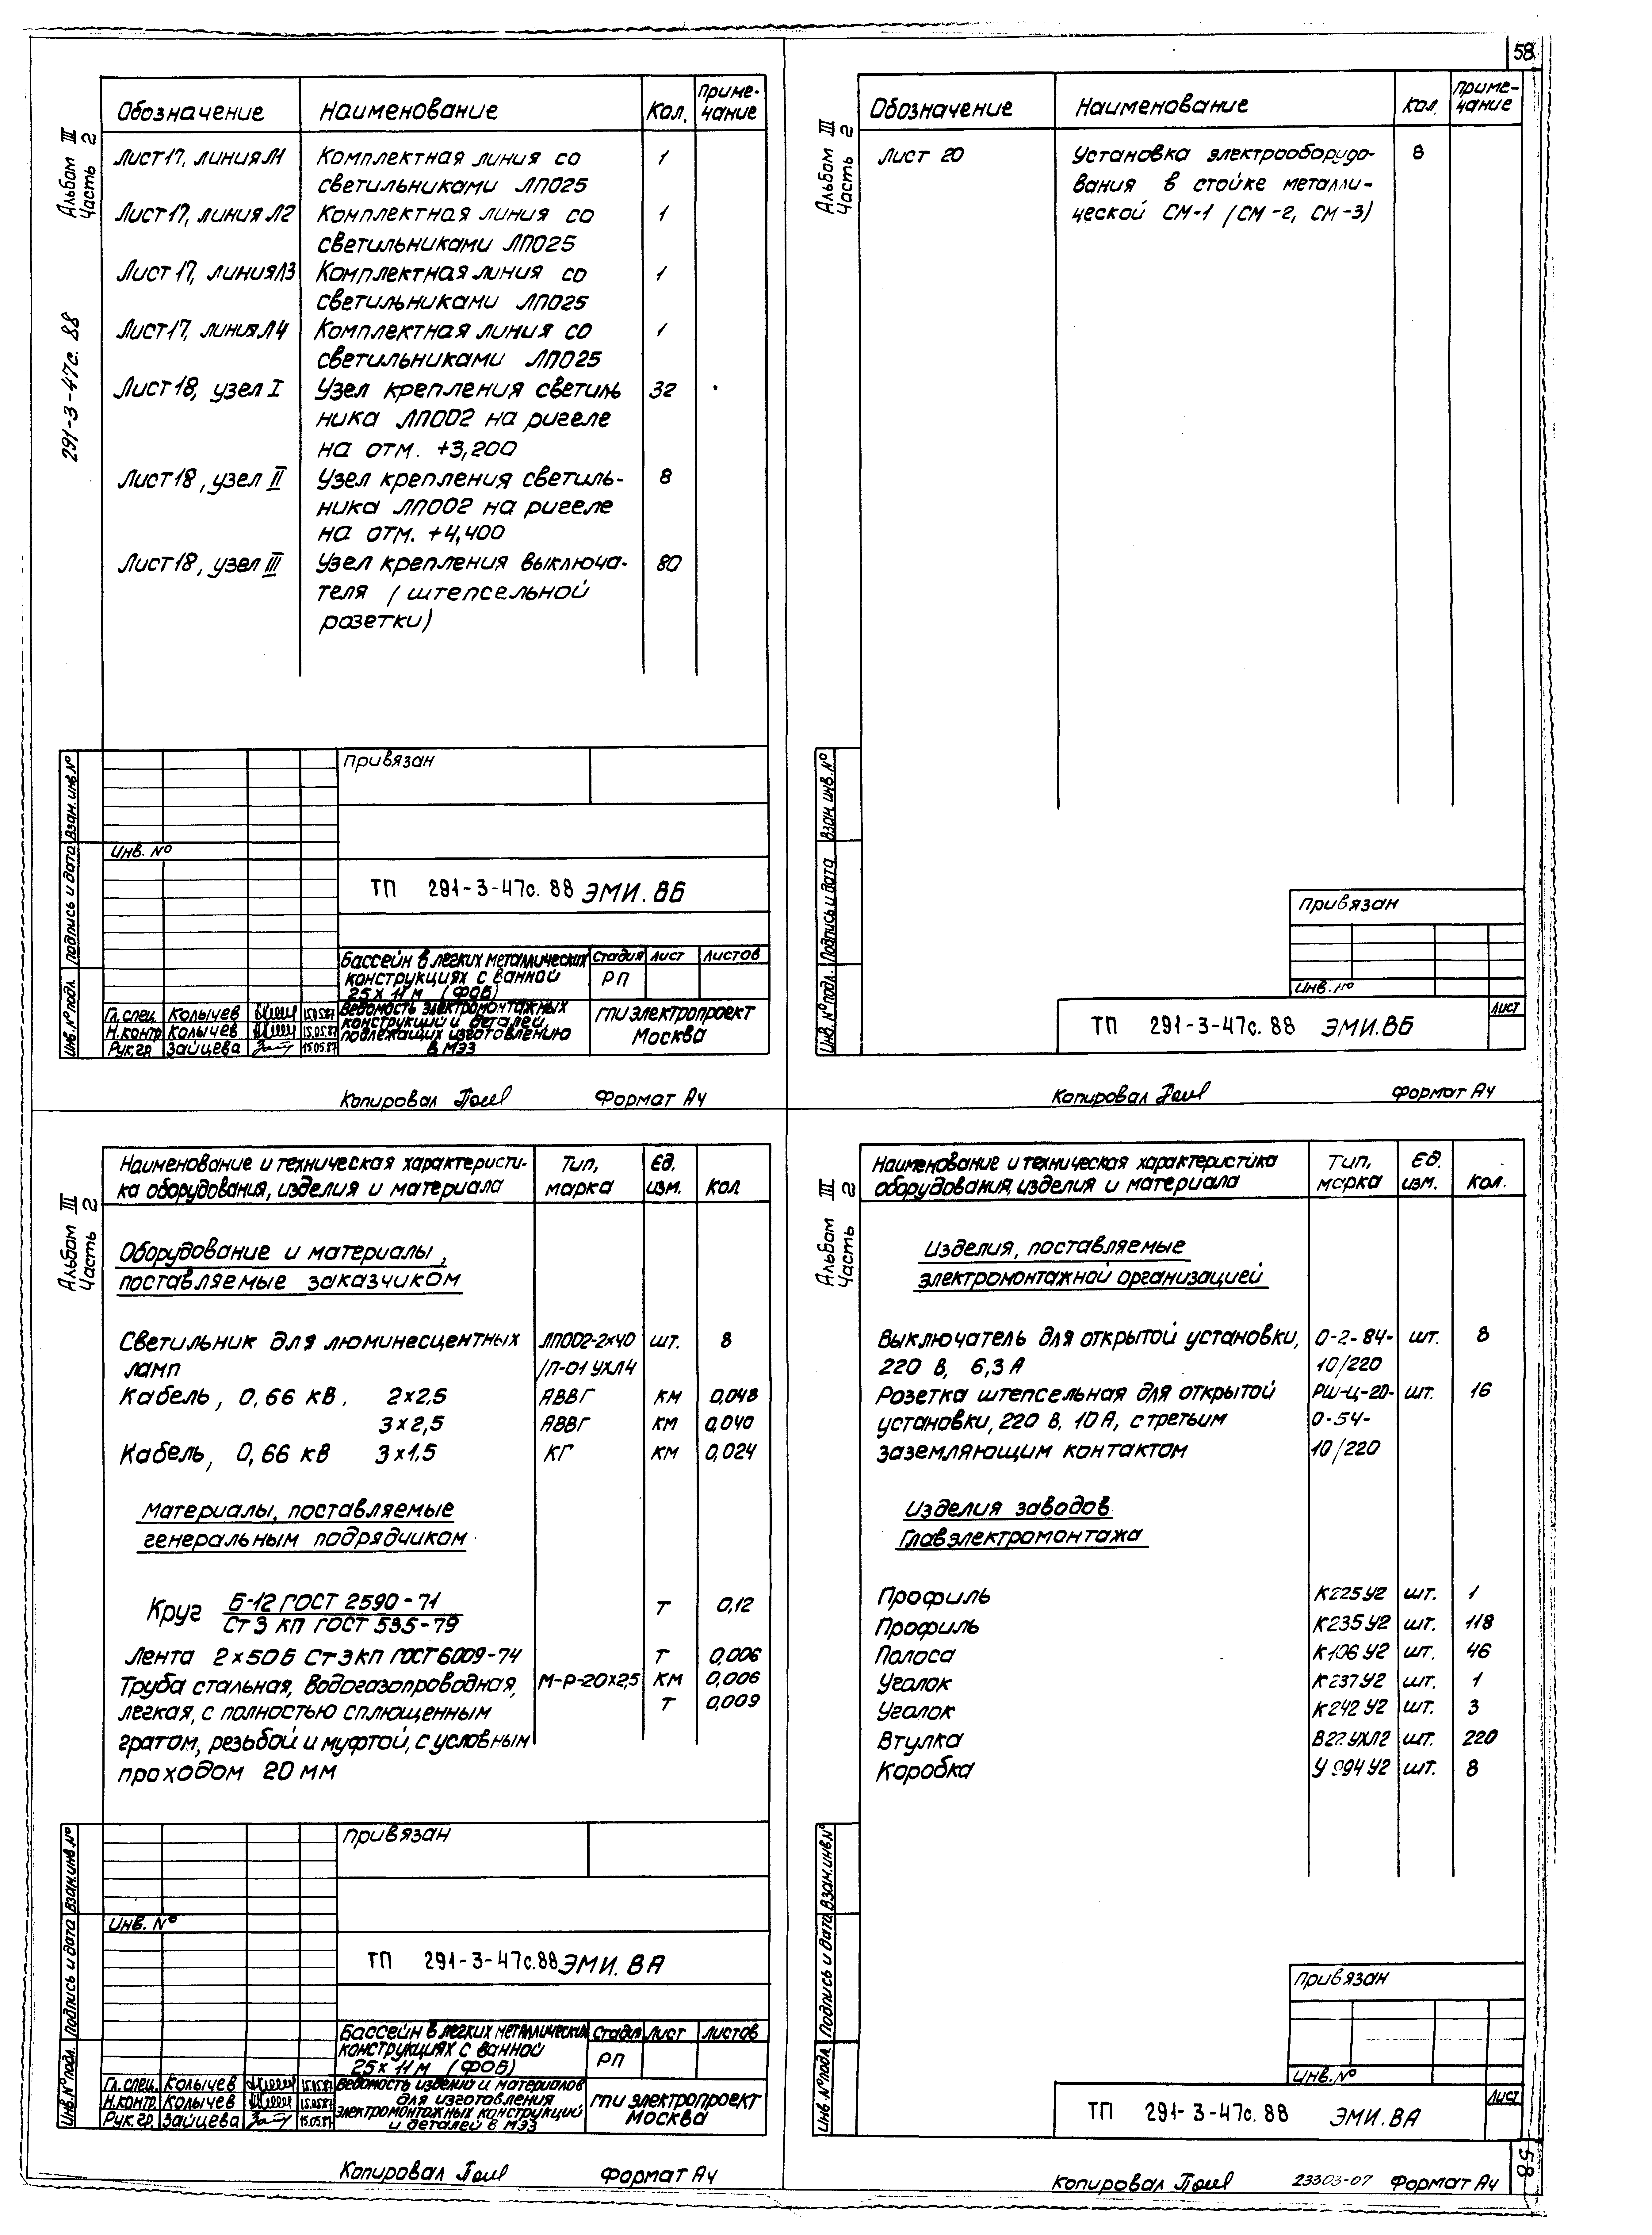 58
Альбом III
Часть 2
291-3-47с. 88
Обозначение Наименование Кол. Приме-
чание
Лист 17, линия Л1 Комплектная линия со 1
светильниками ЛПО25
Лист 17, линия Л2 Комплектная линия со 1
светильниками ЛПО25
Лист 17, линия Л3 Комплектная линия со 1
светильниками ЛПО25
Лист 17, линия Л4 Комплектная линия со 1
светильниками ЛПО25
Лист 18, узел I Узел крепления светиль 32
ника ЛПО02 на ригеле
на отм. +3,200
Лист 18, узел II Узел крепления светиль- 8
ника ЛПО02 на ригеле
на отм. +4,400
Лист 18, узел III Узел крепления выключа- 80
теля (штепсельной
розетки)
Привязан
Инв. №
ТП 291-3-47с. 88 ЭМИ.ВБ
Бассейн в легких металлических
конструкциях с ванной
25х11м (ФОБ)
Стадия Лист Листов
РП
Гл.спец. Колычев 15.05.87
Н.контр Колычев 15.05.87
Рук.гр Зайцева 15.05.87
Ведомость электромонтажных
конструкций и деталей,
подлежащих изготовлению
в МЭЗ
ГПИ электропроект
Москва
Инв.№подл. Подпись и дата Взам.инв.№
Копировал Формат А4
Альбом III
Часть 2
Обозначение Наименование Кол. Приме-
чание
Лист 20 Установка электрооборудо- 8
вания в стойке металли-
ческой СМ-1 (СМ-2, СМ-3)
Привязан
Инв.№
ТП 291-3-47с. 88 ЭМИ.ВБ
Лист
Инв.№подл. Подпись и дата Взам инв.№
Копировал Формат А4
Альбом III
Часть 2
Наименование и техническая характеристи-
ка оборудования, изделия и материала
Тип,
марка
Ед.
изм.
Кол
Оборудование и материалы,
поставляемые заказчиком
Светильник для люминесцентных ЛПО02-2х40 шт. 8
ламп /П-01 УХЛ4
Кабель, 0,66 кВ, 2х2,5 АВВГ км 0,048
3х2,5 АВВГ км 0,040
Кабель, 0,66 кВ 3х1,5 КГ км 0,024
Материалы, поставляемые
генеральным подрядчиком
Круг Б-12 ГОСТ 2590-71 т 0,12
Ст 3 кп ГОСТ 535-79
Лента 2х50Б Ст3кп ГОСТ 6009-74 т 0,006
Труба стальная, водогазопроводная, М-Р-20х2,5 км 0,006
легкая, с полностью сплющенным т 0,009
гратом, резьбой и муфтой, с условным
проходом 20 мм
Привязан
Инв. №
ТП 291-3-47с.88 ЭМИ.ВА
Бассейн в легких металлических
конструкциях с ванной
25х11м (ФОБ)
Стадия Лист Листов
РП
Гл.спец. Колычев 15.05.87
Н.контр. Колычев 15.05.87
Рук.гр. Зайцева 15.05.87
Ведомость изделий и материалов
для изготовления
электромонтажных конструкций
и деталей в МЭЗ
ГПИ электропроект
Москва
Инв.№подл. Подпись и дата Взам.инв.№
Копировал Формат А4
Альбом III
Часть 2
Наименование и техническая характеристика
оборудования, изделия и материала
Тип,
марка
Ед.
изм.
Кол.
Изделия, поставляемые
электромонтажной организацией
Выключатель для открытой установки, О-2-84- шт. 8
220 В, 6,3 А 10/220
Розетка штепсельная для открытой РШ-Ц-20- шт. 16
установки, 220 В, 10 А, с третьим О-54-
заземляющим контактом 10/220
Изделия заводов
Главэлектромонтажа
Профиль К225У2 шт. 1
Профиль К235У2 шт. 118
Полоса К106У2 шт. 46
Уголок К237У2 шт. 1
Уголок К242У2 шт. 3
Втулка В22УХЛ2 шт. 220
Коробка У994У2 шт. 8
Привязан
Инв.№
ТП 291-3-47с.88 ЭМИ.ВА
Лист
Инв.№подл. Подпись и дата Взам.инв.№
Копировал 23303-07 Формат А4
58